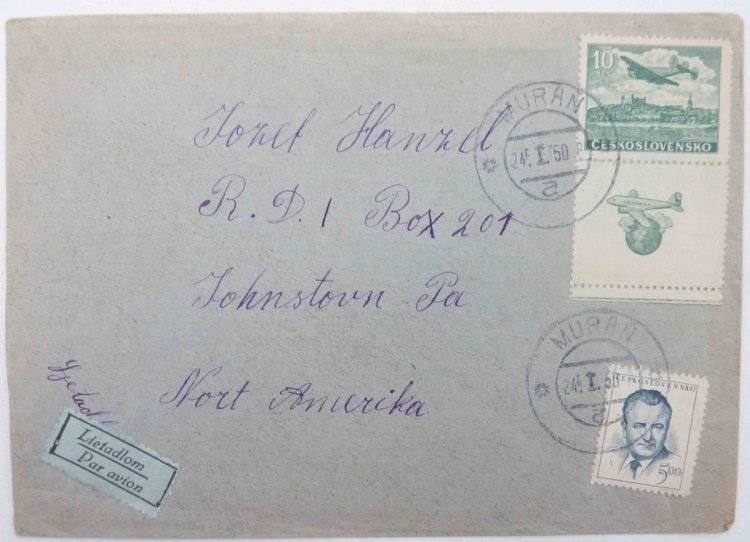 Jozef Hanzel
R. D. 1 Box 201
Johnstovn Pa
Nort Amerika
Lietadlom
Par avion
10
KČS
ČESKOSLOVENSKO
MURÁŇ
24. I. 50
2
MURÁŇ
24. I. 50
2
ČESKOSLOVENSKO
5.00